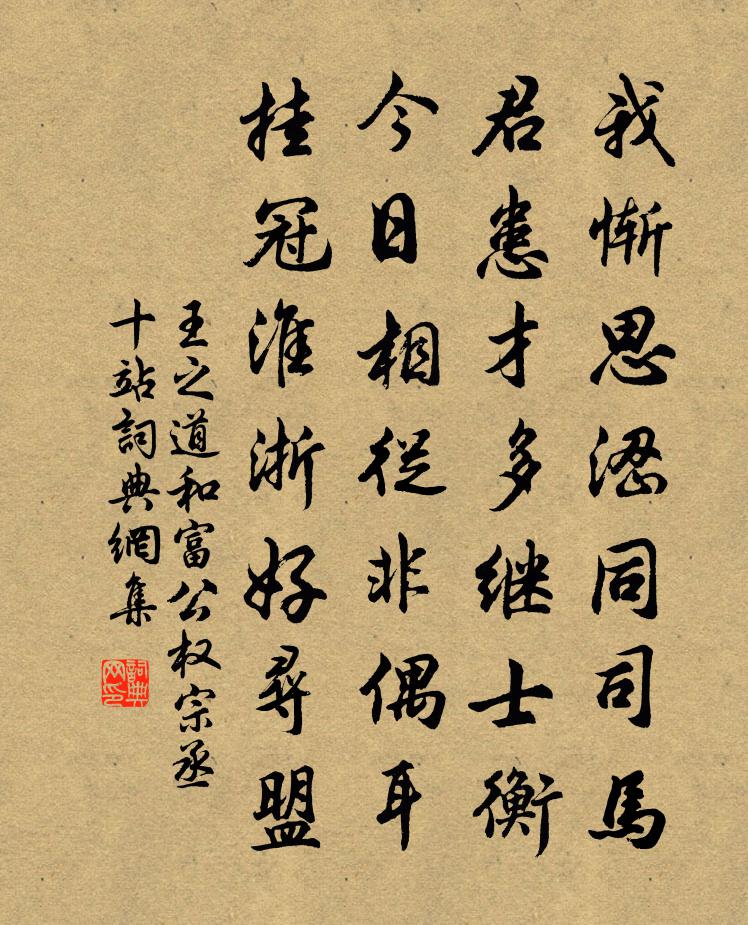 我惭思涩同司馬
君患才多继士衡
今日相從非偶耳
挂冠淮浙好尋盟
王之道和富公权宗丞
十站詞典網集
詞典网印